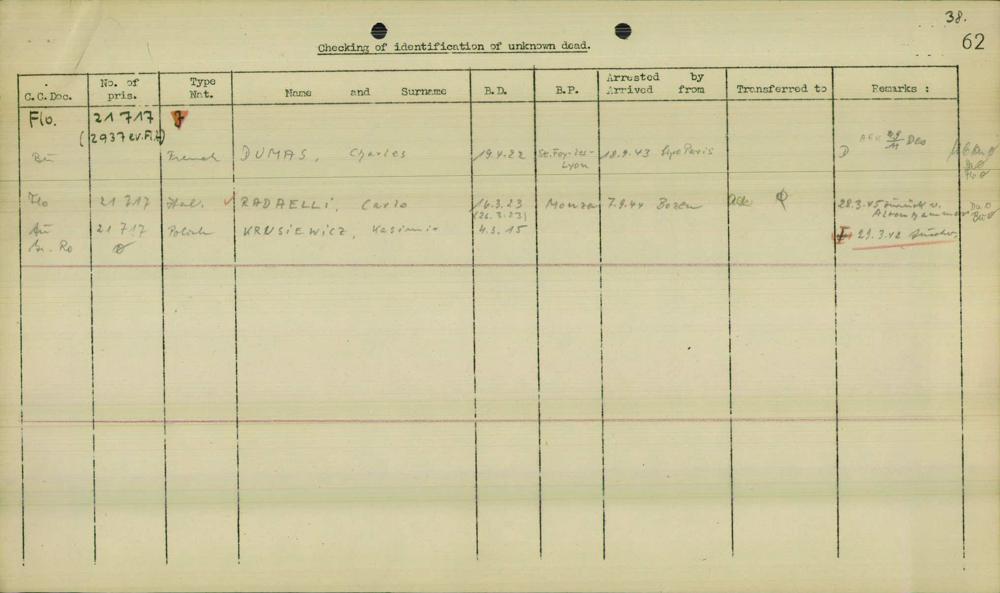 38.
62
Checking of identification of unknown dead.
C.C.Doc. No. of pris. Type Nat. Name and Surname B.D. B.P. Arrested by Arrived from Transferred to Remarks :
Flo. 21 717
(2937 ev. Fi.
Bu French DUMAS, Charles 19.4.22 Ste.Foy-les-Lyon 18.9.43 Paris D
Flo 21 717 Ital. RADAELLI, Carlo 16.3.23 Monza 7.9.44 Bozen 28.3.45 zurück v.
(26.3.23) Altenhammer
Au 21 717 Polish KRUSIEWICZ, Kasimir 4.3.15 29.3.42